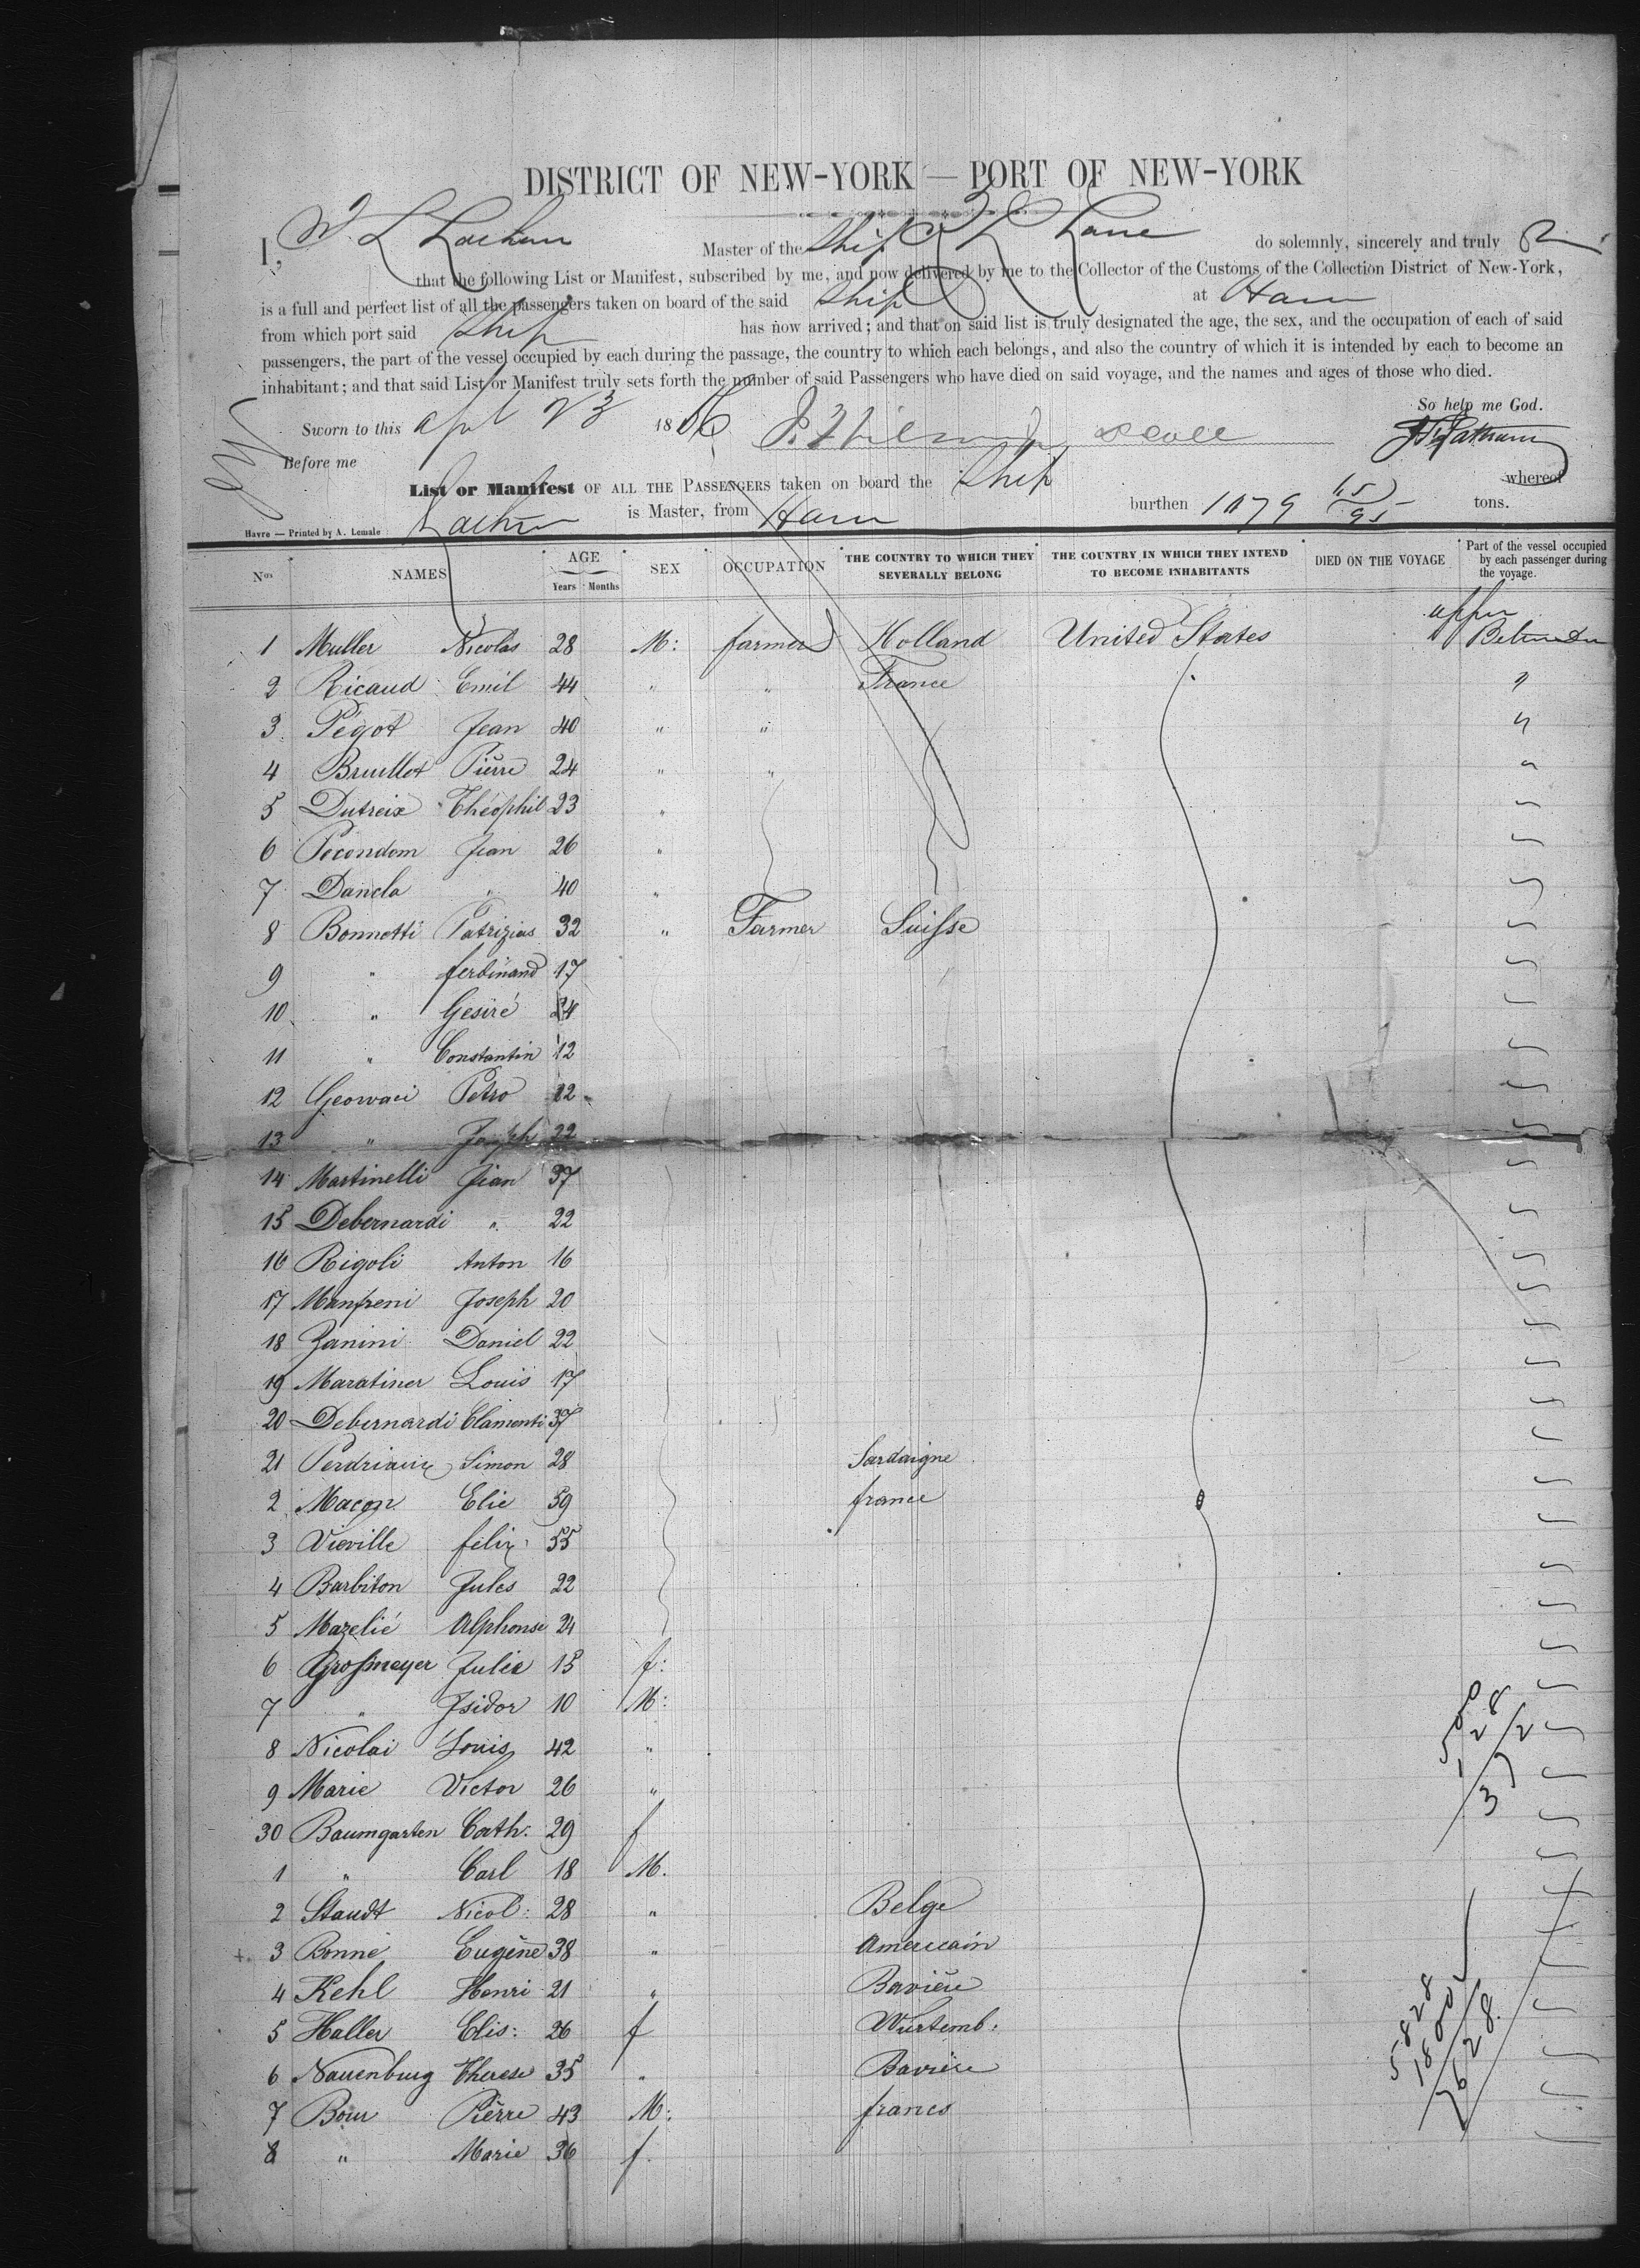 DISTRICT OF NEW-YORK — PORT OF NEW-YORK
I, Master of the Ship Lane do solemnly, sincerely and truly
that the following List or Manifest, subscribed by me, and now delivered by me to the Collector of the Customs of the Collection District of New-York,
is a full and perfect list of all the passengers taken on board of the said Ship at Havre
from which port said Ship has now arrived; and that on said list is truly designated the age, the sex, and the occupation of each of said
passengers, the part of the vessel occupied by each during the passage, the country to which each belongs, and also the country of which it is intended by each to become an
inhabitant; and that said List or Manifest truly sets forth the number of said Passengers who have died on said voyage, and the names and ages of those who died.
So help me God.
Sworn to this April 23 1856
Before me
List or Manifest OF ALL THE PASSENGERS taken on board the Ship whereof
is Master, from Havre burthen 1079 tons.
Havre — Printed by A. Lemale
Nos NAMES AGE Years Months SEX OCCUPATION THE COUNTRY TO WHICH THEY SEVERALLY BELONG THE COUNTRY IN WHICH THEY INTEND TO BECOME INHABITANTS DIED ON THE VOYAGE Part of the vessel occupied by each passenger during the voyage.
upper
1 Muller Nicolas 28 M: farmer Holland United States
2 Ricaud Emil 44 " " France "
3 Pégot Jean 40 " " "
4 Bruillot Pierre 24 " " "
5 Dutreix Théophil 23 "
6 Pecondom Jean 26 "
7 Dancla " 40 "
8 Bonnetti Patrizius 32 " Farmer Suisse
9 " ferdinand 17
10 " Gesiré 24
11 " Constantin 12
12 Geowaci Petro 22
13 " Joseph 22
14 Martinelli Jean 37
15 Debernardi " 22
16 Rigoli Anton 16
17 Manfreni Joseph 20
18 Zanini Daniel 22
19 Maratiner Louis 17
20 Debernardi Clamenti 37
21 Simon 28 Sardaigne
2 Macon Elie 59 france
3 Vieville felix 55
4 Barbiton Jules 22
5 Mazelié Alphonse 24
6 Großmeyer Julie 15 f:
7 " Isidor 10 M:
8 Nicolai Louis 42 "
9 Marie Victor 26 "
30 Baumgarten Cath: 29 f
1 " Carl 18 M.
2 Staudt Nicol: 28 " Belge
3 Bonné Eugène 38 " Americain
4 Kehl Henri 21 " Bavière
5 Haller Elis: 26 f Wurtemb:
6 Nauenburg Therese 35 " Bavière
7 Bour Pierre 43 M: france
8 " Marie 36 f.
5828
1800
7628